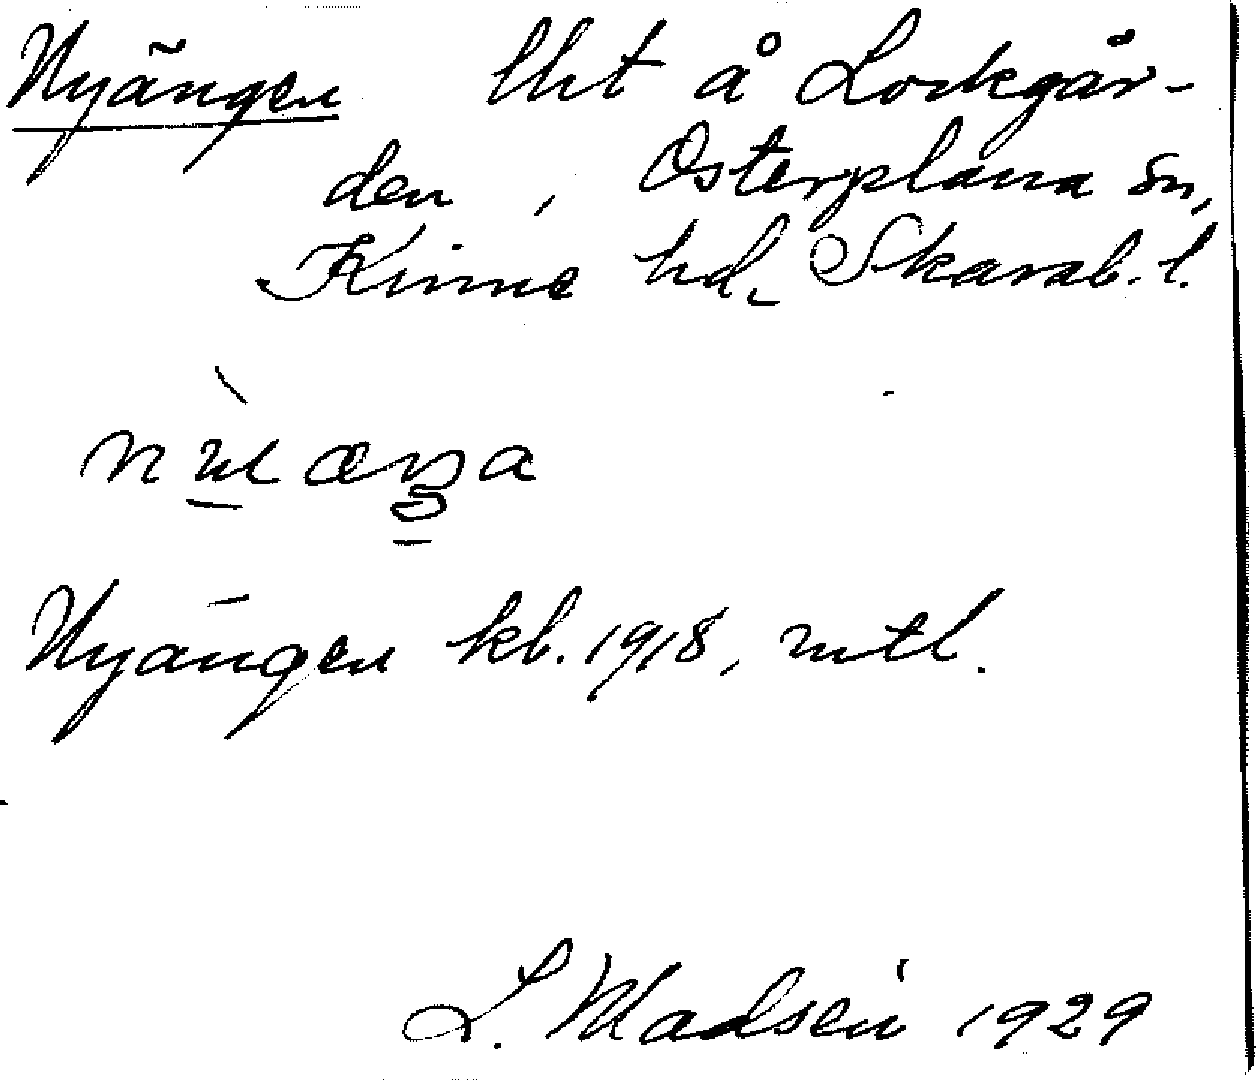 Nyängen lht å Lockgår-
den, Österplana sn,
Kinne hd, Skarab. l.
Nyängen kb. 1918, mtl.
L. Madsén 1929